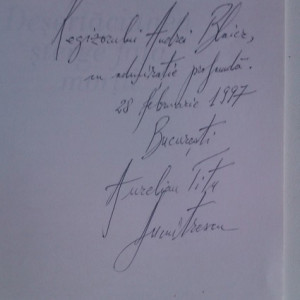 Regizorului Andrei Blaier,
cu admirație profundă.
28 februarie 1997
București
Aurelian Titu
Dumitrescu